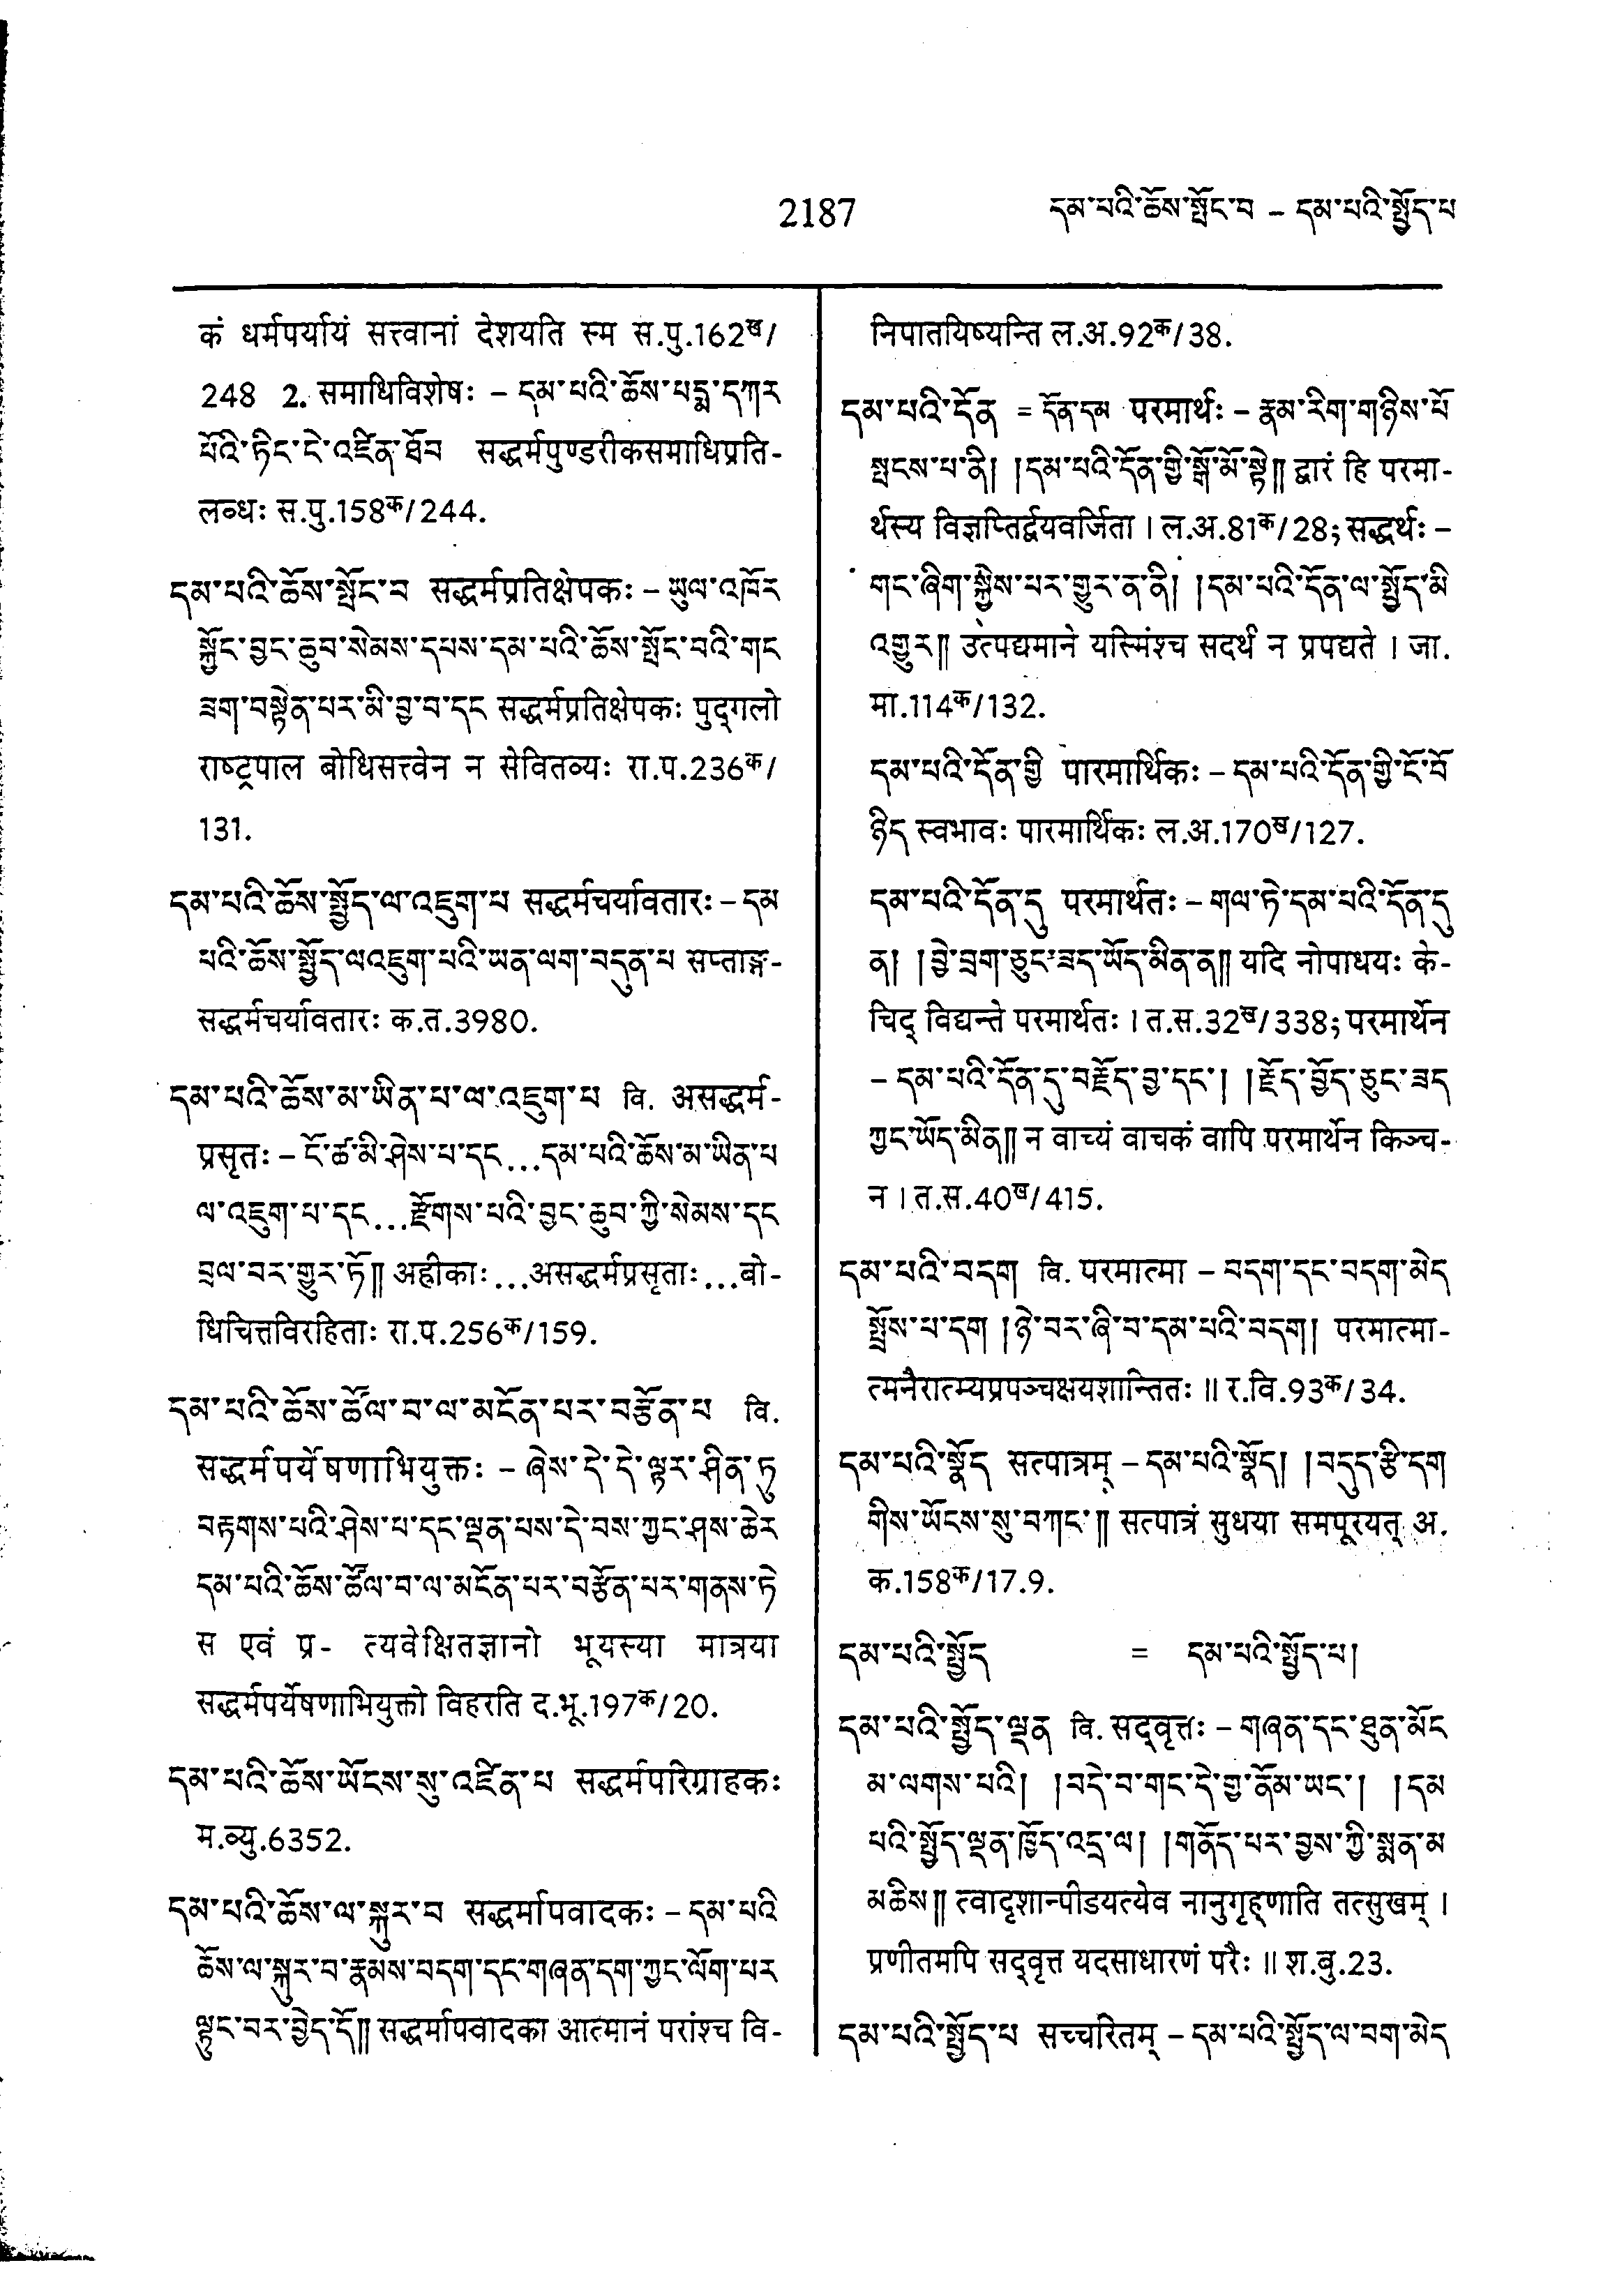 2187
དམ་པའི་ཆོས་སྤོང་བ – དམ་པའི་སྤྱོད་པ
कं धर्मपर्यायं सत्त्वानां देशयति स्म स.पु.162ख/
248 2. समाधिविशेषः – དམ་པའི་ཆོས་པདྨ་དཀར
པོའི་ཏིང་ངེ་འཛིན་ཐོབ सद्धर्मपुण्डरीकसमाधिप्रति-
लब्धः स.पु.158क/244.
དམ་པའི་ཆོས་སྤོང་བ सद्धर्मप्रतिक्षेपकः – ཡུལ་འཁོར
སྐྱོང་བྱང་ཆུབ་སེམས་དཔས་དམ་པའི་ཆོས་སྤོང་བའི་གང
ཟག་བསྟེན་པར་མི་བྱ་བ་དང सद्धर्मप्रतिक्षेपकः पुद्गलो
राष्ट्रपाल बोधिसत्त्वेन न सेवितव्यः रा.प.236क/
131.
དམ་པའི་ཆོས་སྤྱོད་ལ་འཇུག་པ सद्धर्मचर्यावतारः – དམ
པའི་ཆོས་སྤྱོད་ལ་འཇུག་པའི་ཡན་ལག་བདུན་པ सप्ताङ्ग-
सद्धर्मचर्यावतारः क.त.3980.
དམ་པའི་ཆོས་མ་ཡིན་པ་ལ་འཇུག་པ वि. असद्धर्म-
प्रसृतः – ངོ་ཚ་མི་ཤེས་པ་དང...དམ་པའི་ཆོས་མ་ཡིན་པ
ལ་འཇུག་པ་དང...རྫོགས་པའི་བྱང་ཆུབ་ཀྱི་སེམས་དང
བྲལ་བར་གྱུར་ཏོ།། अह्रीकाः...असद्धर्मप्रसृताः...बो-
धिचित्तविरहिताः रा.प.256क/159.
དམ་པའི་ཆོས་ཚོལ་བ་ལ་མངོན་པར་བརྩོན་པ वि.
सद्धर्मपर्येषणाभियुक्तः – ཞེས་དེ་དེ་ལྟར་ཤིན་ཏུ
བརྟགས་པའི་ཤེས་པ་དང་ལྡན་པས་དེ་བས་ཀྱང་ཤས་ཆེར
དམ་པའི་ཆོས་ཚོལ་བ་ལ་མངོན་པར་བརྩོན་པར་གནས་ཏེ
स एवं प्र- त्यवेक्षितज्ञानो भूयस्या मात्रया
सद्धर्मपर्येषणाभियुक्तो विहरति द.भू.197क/20.
དམ་པའི་ཆོས་ཡོངས་སུ་འཛིན་པ सद्धर्मपरिग्राहकः
म.व्यु.6352.
དམ་པའི་ཆོས་ལ་སྐུར་བ सद्धर्मापवादकः – དམ་པའི
ཆོས་ལ་སྐུར་བ་རྣམས་བདག་དང་གཞན་དག་ཀྱང་ལོག་པར
ལྟུང་བར་བྱེད་དོ།། सद्धर्मापवादका आत्मानं परांश्च वि-
निपातयिष्यन्ति ल.अ.92क/38.
དམ་པའི་དོན = དོན་དམ परमार्थः – རྣམ་རིག་གཉིས་པོ
སྤངས་པ་ནི། །དམ་པའི་དོན་གྱི་སྒོ་མོ་སྟེ།། द्वारं हि परमा-
र्थस्य विज्ञप्तिर्द्वयवर्जिता । ल.अ.81क/28; सद्धर्थः –
གང་ཞིག་སྐྱེས་པར་གྱུར་ན་ནི། །དམ་པའི་དོན་ལ་སྤྱོད་མི
འགྱུར།། उत्पद्यमाने यस्मिंश्च सदर्थं न प्रपद्यते । जा.
मा.114क/132.
དམ་པའི་དོན་གྱི पारमार्थिकः – དམ་པའི་དོན་གྱི་ངོ་བོ
ཉིད स्वभावः पारमार्थिकः ल.अ.170ख/127.
དམ་པའི་དོན་དུ परमार्थतः – གལ་ཏེ་དམ་པའི་དོན་དུ
ན། །བྱེ་བྲག་ཅུང་ཟད་ཡོད་མིན་ན།། यदि नोपाधयः के-
चिद् विद्यन्ते परमार्थतः । त.स.32ख/338; परमार्थेन
– དམ་པའི་དོན་དུ་བརྗོད་བྱ་དང་། །རྗོད་བྱོད་ཅུང་ཟད
ཀྱང་ཡོད་མིན།། न वाच्यं वाचकं वापि परमार्थेन किञ्च-
न । त.स.40ख/415.
དམ་པའི་བདག वि. परमात्मा – བདག་དང་བདག་མེད
སྤྲོས་པ་དག །ཉེ་བར་ཞི་བ་དམ་པའི་བདག། परमात्मा-
त्मनैरात्म्यप्रपञ्चक्षयशान्तितः ॥ र.वि.93क/34.
དམ་པའི་སྣོད सत्पात्रम् – དམ་པའི་སྣོད། །བདུད་རྩི་དག
གིས་ཡོངས་སུ་བཀང་།། सत्पात्रं सुधया समपूरयत् अ.
क.158क/17.9.
དམ་པའི་སྤྱོད = དམ་པའི་སྤྱོད་པ།
དམ་པའི་སྤྱོད་ལྡན वि. सद्वृत्तः – གཞན་དང་ཐུན་མོང
མ་ལགས་པའི། །བདེ་བ་གང་དེ་གྱ་ནོམ་ཡང་། །དམ
པའི་སྤྱོད་ལྡན་ཁྱོད་འདྲ་ལ། །གནོད་པར་བྱས་ཀྱི་སྨན་མ
མཆིས།། त्वादृशान्पीडयत्येव नानुगृह्णाति तत्सुखम् ।
प्रणीतमपि सद्वृत्त यदसाधारणं परैः ॥ श.बु.23.
དམ་པའི་སྤྱོད་པ सच्चरितम् – དམ་པའི་སྤྱོད་ལ་བག་མེད